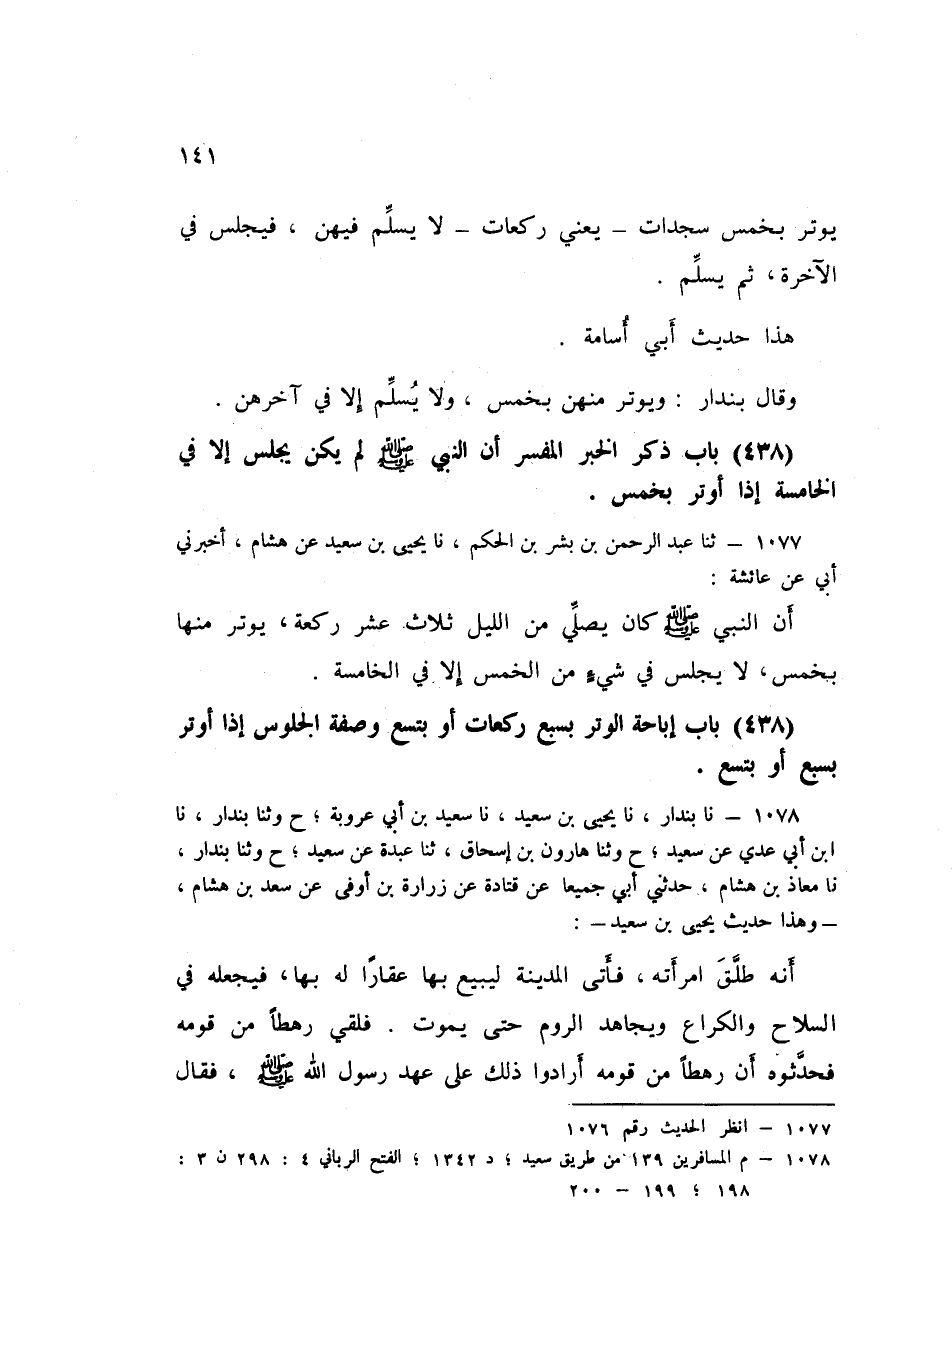 ١٤١
يوتر بخمس سجدات – يعني ركعات – لا يسلِّم فيهن ، فيجلس في
الآخرة ، ثم يسلِّم .
هذا حديث أَبي أُسامة .
وقال بندار : ويوتر منهن بخمس ، ولا يُسلِّم إلا في آخرهن .
(٤٣٨) باب ذكر الخبر المفسر أن النبي ﷺ لم يكن يجلس إلا في
الخامسة إذا أوتر بخمس .
١٠٧٧ – ثنا عبد الرحمن بن بشر بن الحكم ، نا يحيى بن سعيد عن هشام ، أخبرني
أبي عن عائشة :
أَن النبي ﷺ كان يصلِّي من الليل ثلاث عشر ركعة ، يوتر منها
بخمس ، لا يجلس في شيءٍ من الخمس إلا في الخامسة .
(٤٣٨) باب إباحة الوتر بسبع ركعات أو بتسع وصفة الجلوس إذا أوتر
بسبع أو بتسع .
١٠٧٨ – نا بندار ، نا يحيى بن سعيد ، نا سعيد بن أبي عروبة ؛ ح وثنا بندار ، نا
ابن أبي عدي عن سعيد ؛ ح وثنا هارون بن إسحاق ، ثنا عبدة عن سعيد ؛ ح وثنا بندار ،
نا معاذ بن هشام ، حدثني أبي جميعا عن قتادة عن زرارة بن أوفى عن سعد بن هشام ،
– وهذا حديث يحيى بن سعيد – :
أَنه طلَّقَ امرأَته ، فأَتى المدينة ليبيع بها عقارًا له بها ، فيجعله في
السلاح والكراع ويجاهد الروم حتى يموت . فلقي رهطاً من قومه
فحدَّثوه أَن رهطاً من قومه أَرادوا ذلك على عهد رسول الله ﷺ ، فقال
١٠٧٧ – انظر الحديث رقم ١٠٧٦
١٠٧٨ – م المسافرين ١٣٩ من طريق سعيد ؛ د ١٣٤٢ ؛ الفتح الرباني ٤ : ٢٩٨ ن ٣ :
١٩٨ ؛ ١٩٩ – ٢٠٠